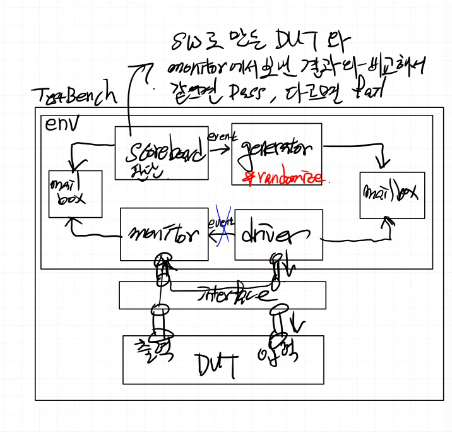 SW로 만든 DUT 와
monitor에서 보낸 결과와 비교해서
같으면 Pass, 다르면 fail
TestBench
env
Scoreboard
판단
event
generator
*randomize.
mail
box
mailbox
monitor
event
driver
interface
출력
입력
DUT